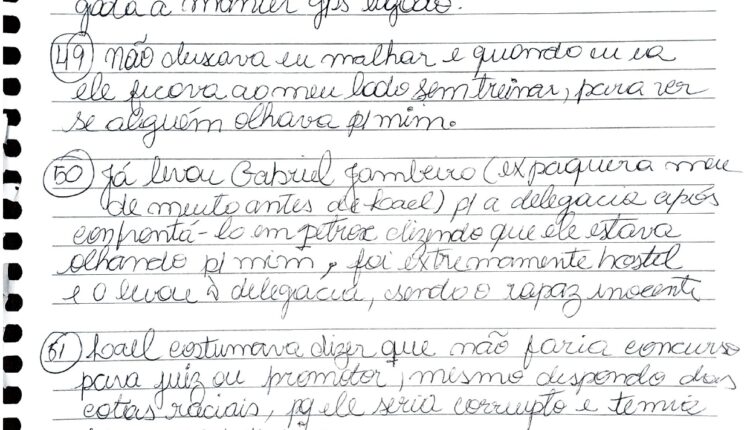 gada a manter gps ligado.
49 Não deixava eu malhar e quando eu ia
ele ficava ao meu lado sem treinar, para ver
se alguém olhava p/ mim.
50 Já levou Gabriel Jambeiro (ex paquera meu
de muito antes de Kael) p/ a delegacia após
confrontá-lo em petrox dizendo que ele estava
olhando p/ mim, foi extremamente hostil
e o levou à delegacia, sendo o rapaz inocente
51 Kael costumava dizer que não faria concurso
para juiz ou promotor, mesmo dispondo das
cotas raciais, pq ele seria corrupto e temia